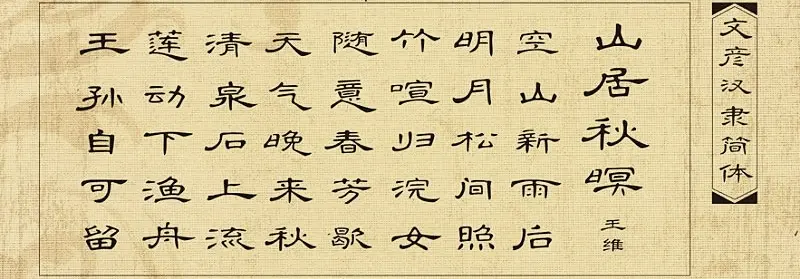 文彦汉隶简体
山居秋暝
王维
空山新雨后
明月松间照
竹喧归浣女
随意春芳歇
天气晚来秋
清泉石上流
莲动下渔舟
王孙自可留